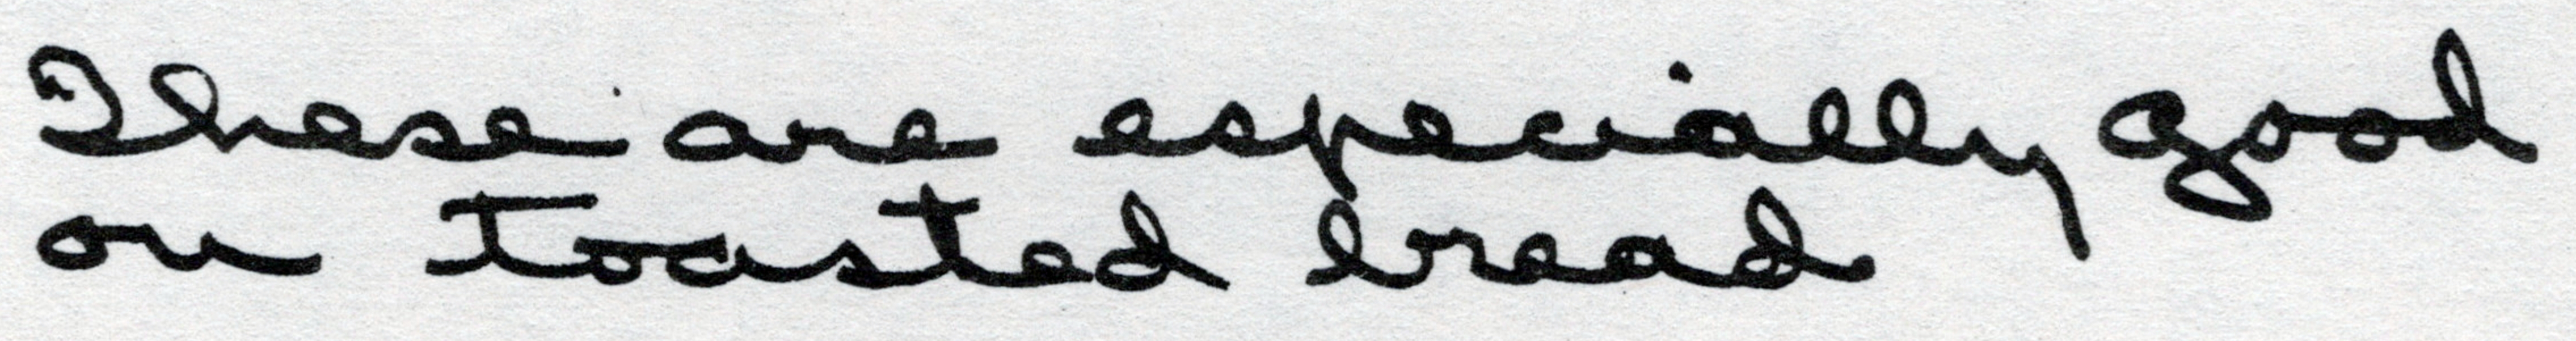 These are especially good
on toasted bread